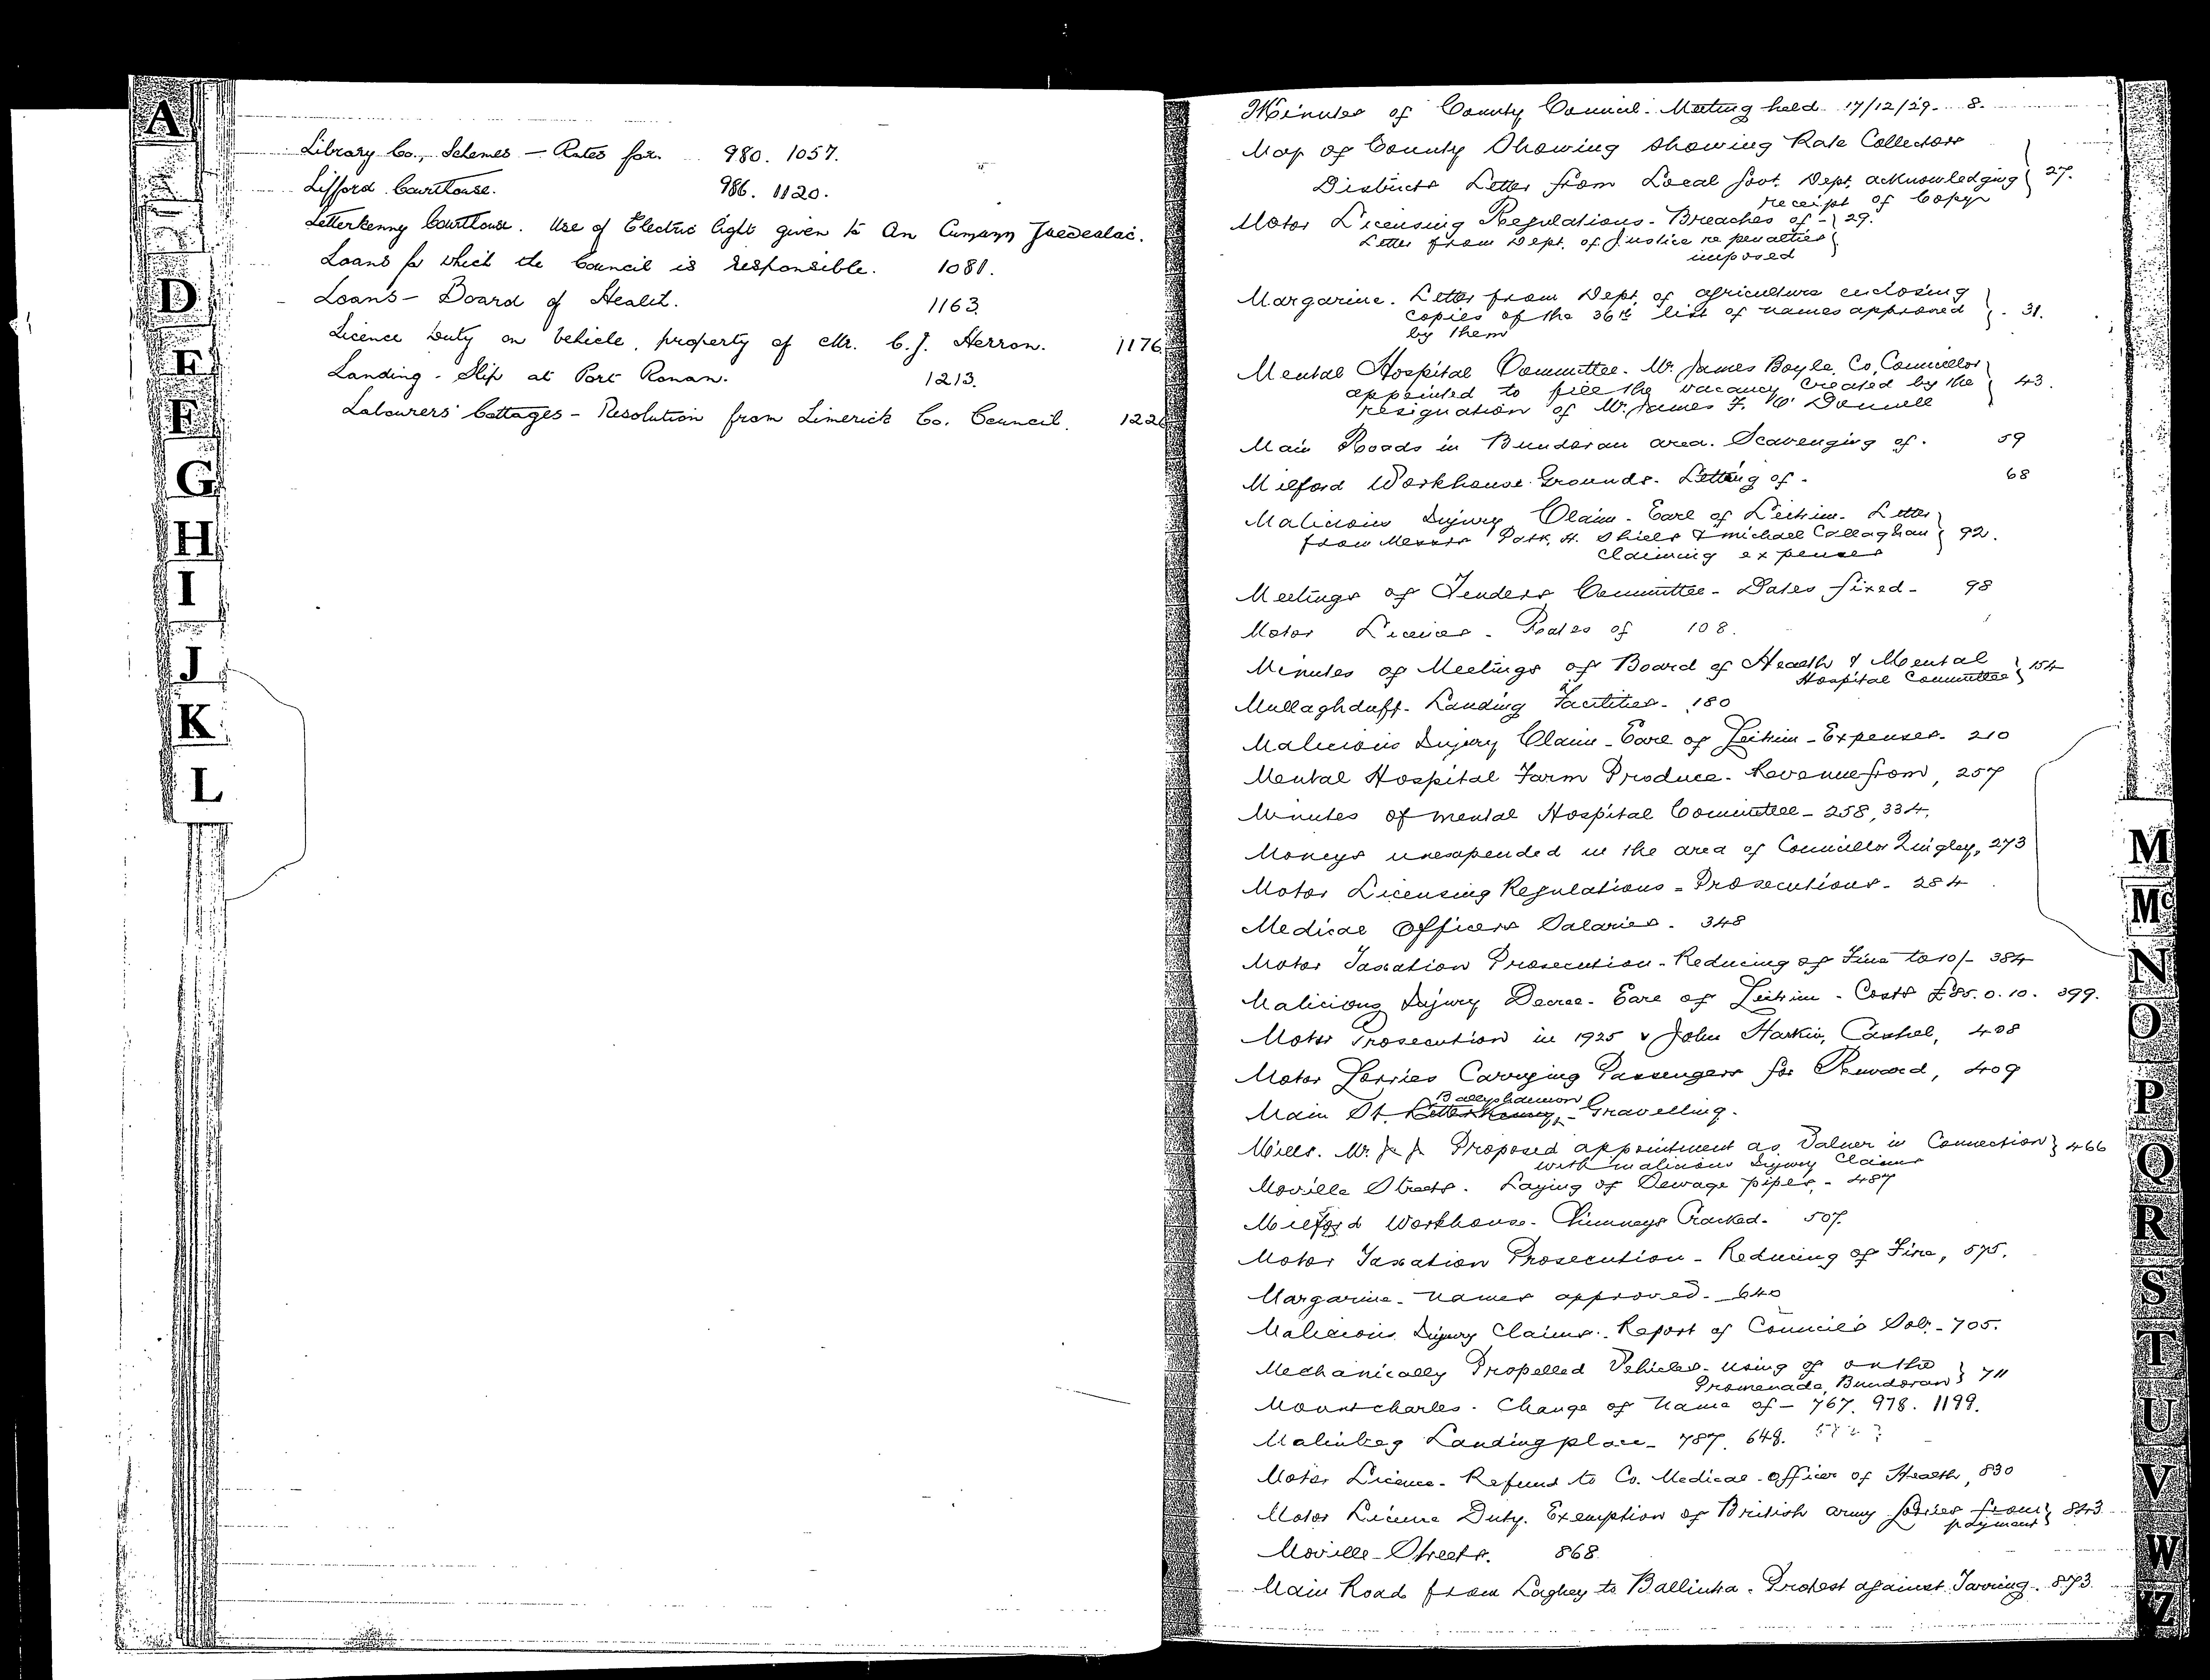 A
D
E
F
G
H
I
J
K
L
Library Co., Schemes — Rates for. 980. 1057.
Lifford Courthouse. 986. 1120.
Letterkenny Courthouse. Use of Electric light given to An Cumann
Loans for which the Council is responsible. 1081.
Loans — Board of Health. 1163.
Licence Duty on Vehicle, property of Mr. C.J. Herron. 1176
Landing - Slip at Port Ronan. 1213.
Labourers' Cottages — Resolution from Limerick Co. Council. 122
Minutes of County Council. Meeting held 17/12/29. 8.
Map of County Showing showing Rate Collectors
Districts Letter from Local Govt. Dept. acknowledging 27.
receipt of Copy
Motor Licensing Regulations. Breaches of - 29.
Letter from Dept. of Justice re penalties
imposed
Margarine. Letter from Dept. of agriculture enclosing
copies of the 36th list of names approved 31.
by them
Mental Hospital Committee. Mr. James Boyle, Co, Councillor
appointed to fill the vacancy created by the 43.
resignation of Mr. James F. O'Donnell
Main Roads in Bundoran area. Scavenging of. 59
Milford Workhouse Grounds. Letting of. 68
Malicious Injury Claim - Earl of Leitrim. Letter
from Messrs Patk. H. Shiels & Michael Callaghan 92.
claiming expenses
Meetings of Tenders Committee - Dates fixed - 98
Motor Licences - Rates of 108.
Minutes of Meetings of Board of Health & Mental
Hospital Committee 154
Mullaghduff. Landing Facilities. 180
Malicious Injury Claim - Earl of Leitrim - Expenses. 210
Mental Hospital Farm Produce. Revenue from, 257
Minutes of mental Hospital Committee - 258, 334,
Moneys unexpended in the area of Councillor Quigley, 273
Motor Licensing Regulations - Prosecutions. 284
Medical Officers Salaries. 348
Motor Taxation Prosecution - Reducing of Fine to 10/- 384
Malicious Injury Decree - Earl of Leitrim - Costs £85. 0. 10. 399.
Motor Prosecution in 1925 v John Harkin, Cashel, 408
Motor Lorries Carrying Passengers for Reward, 409
Ballyshannon
Main St. Letterkenny, - Gravelling.
Mills. Mr. J. J. Proposed appointment as Valuer in Connection 466
with malicious Injury Claims
Moville Streets. Laying of Sewage pipes, - 487
Milford Workhouse. Chimneys Cracked. 507.
Motor Taxation Prosecution - Reducing of Fine, 575.
Margarine - names approved. 640
Malicious Injury Claims. Report of Council's Solr. - 705.
Mechanically Propelled Vehicles - using of on the
Promenade, Bundoran 711
Mountcharles. Change of name of - 767. 978. 1199.
Malinbeg Landing place - 787. 648.
Motor Licence - Refund to Co. Medical officer of Health, 830
Motor Licence Duty. Exemption of British army lorries from 843
payment
Moville Streets. 868
Main Road from Laghey to Ballintra. Protest against Tarring. 873.
M
Mc
N
O
P
Q
R
S
T
U
V
W
Z